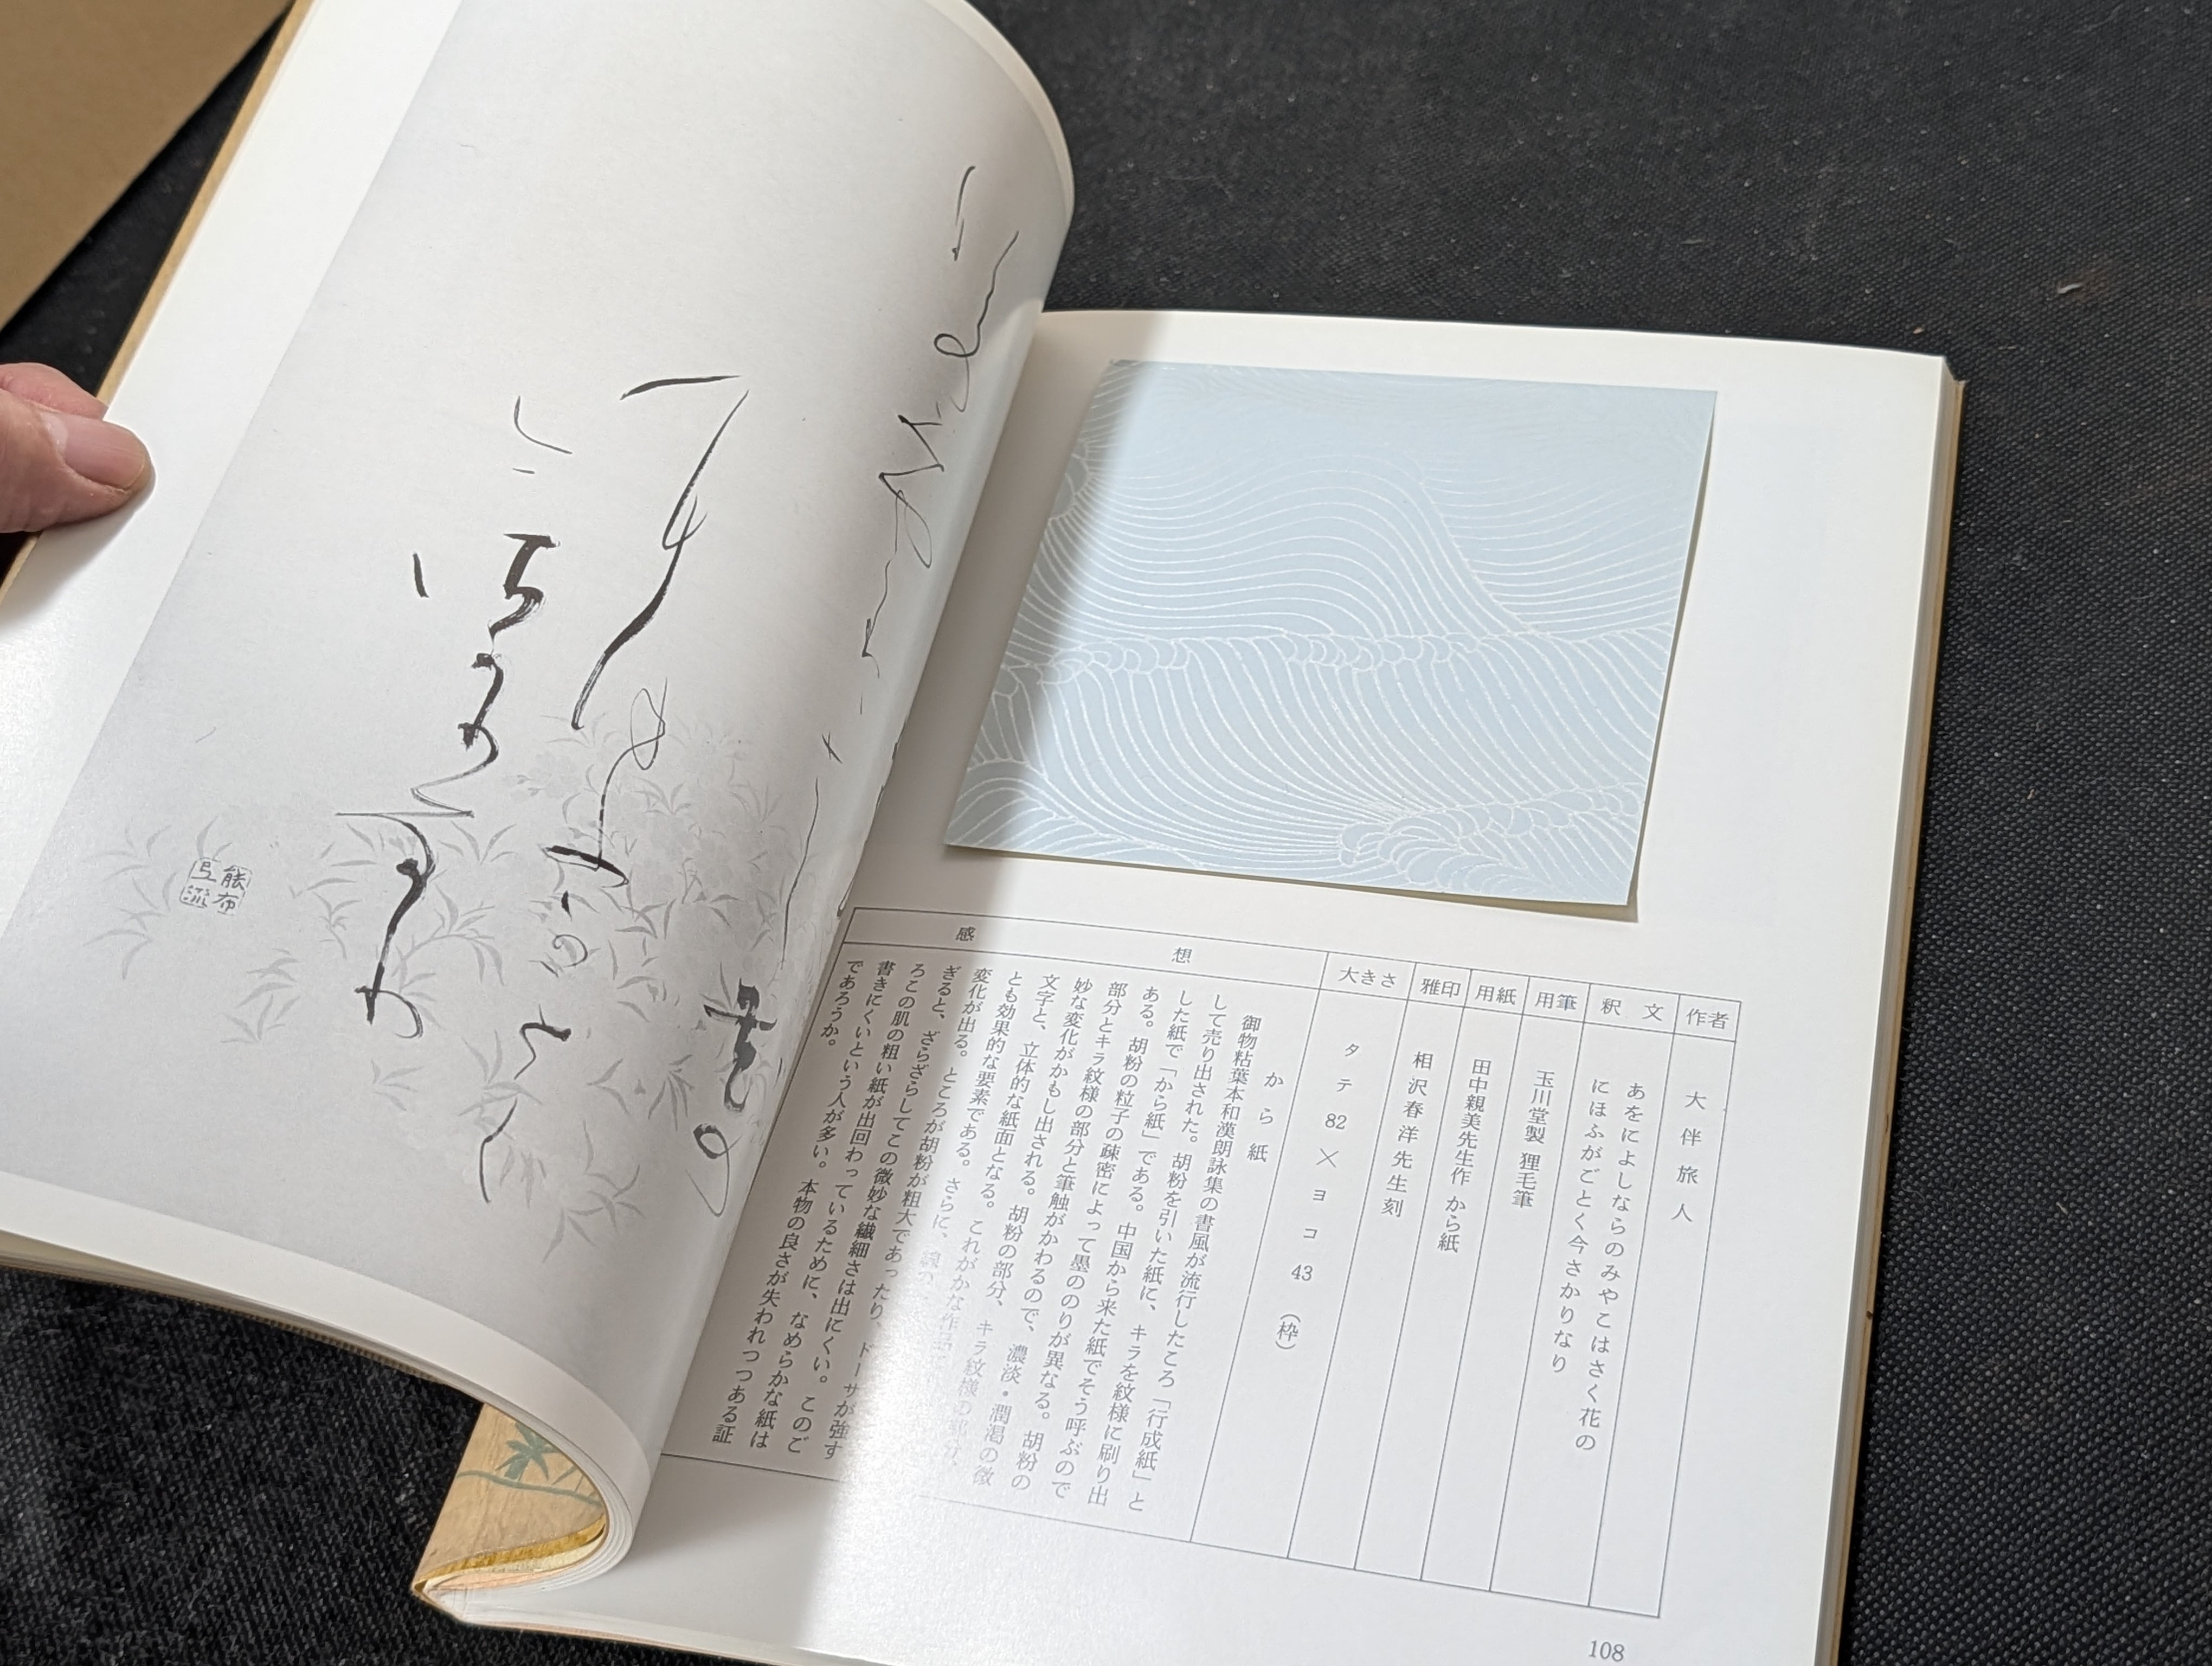 作者
大伴旅人
釈文
あをによしならのみやこはさく花の
にほふがごとく今さかりなり
用筆
玉川堂製 狸毛筆
用紙
田中親美先生作 から紙
雅印
相沢春洋先生刻
大きさ
タテ82×ヨコ43(枠)
感想
から紙
御物粘葉本和漢朗詠集の書風が流行したころ「行成紙」と
して売り出された。胡粉を引いた紙に、キラを紋様に刷り出
した紙で「から紙」である。中国から来た紙でそう呼ぶので
ある。胡粉の粒子の疎密によって墨ののりが異なる。胡粉の
部分とキラ紋様の部分と筆触がかわるので、濃淡・潤渇の微
妙な変化がかもし出される。胡粉の部分、キラ紋様の部分、
文字と、立体的な紙面となる。これがかな作品
とも効果的な要素である。さらに、線の
変化が出る。ところが胡粉が粗大であったり、ドーサが強す
ぎると、ざらざらしてこの微妙な繊細さは出にくい。このご
ろこの肌の粗い紙が出回わっているために、なめらかな紙は
書きにくいという人が多い。本物の良さが失われつつある証
であろうか。
108